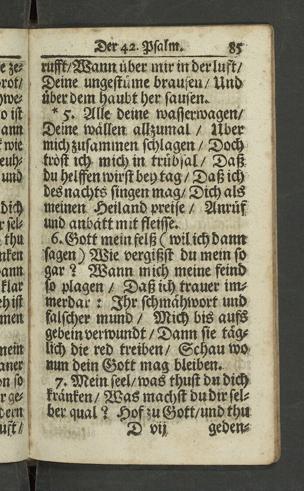 Der 42. Psalm. 85
rufft/ Wann über mir in der lufft/
Deine ungestüme brausen/ Und
über dem haubt her sausen.
* 5. Alle deine wasserwagen/
Deine wällen allzumal / Uber
mich zusammen schlagen/ Doch
tröst ich mich in trübsal/ Daß
du helffen wirst bey tag/ Daß ich
des nachts singen mag/ Dich als
meinen Heiland preise/ Anrüf
und anbätt mit fleisse.
6. Gott mein felß (wil ich dann
sagen) Wie vergißst du mein so
gar? Wann mich meine feind
so plagen/ Daß ich traur im-
merdar: Ihr schmähwort und
falscher mund/ Mich bis aufs
gebein verwundt/ Dann sie täg-
lich die red treiben/ Schau wo
nun dein Gott mag bleiben.
7. Mein seel/ was thust du dich
kränken/ Was machst du dir sel-
ber qual? Hof zu Gott/ und thu
D vij geden-